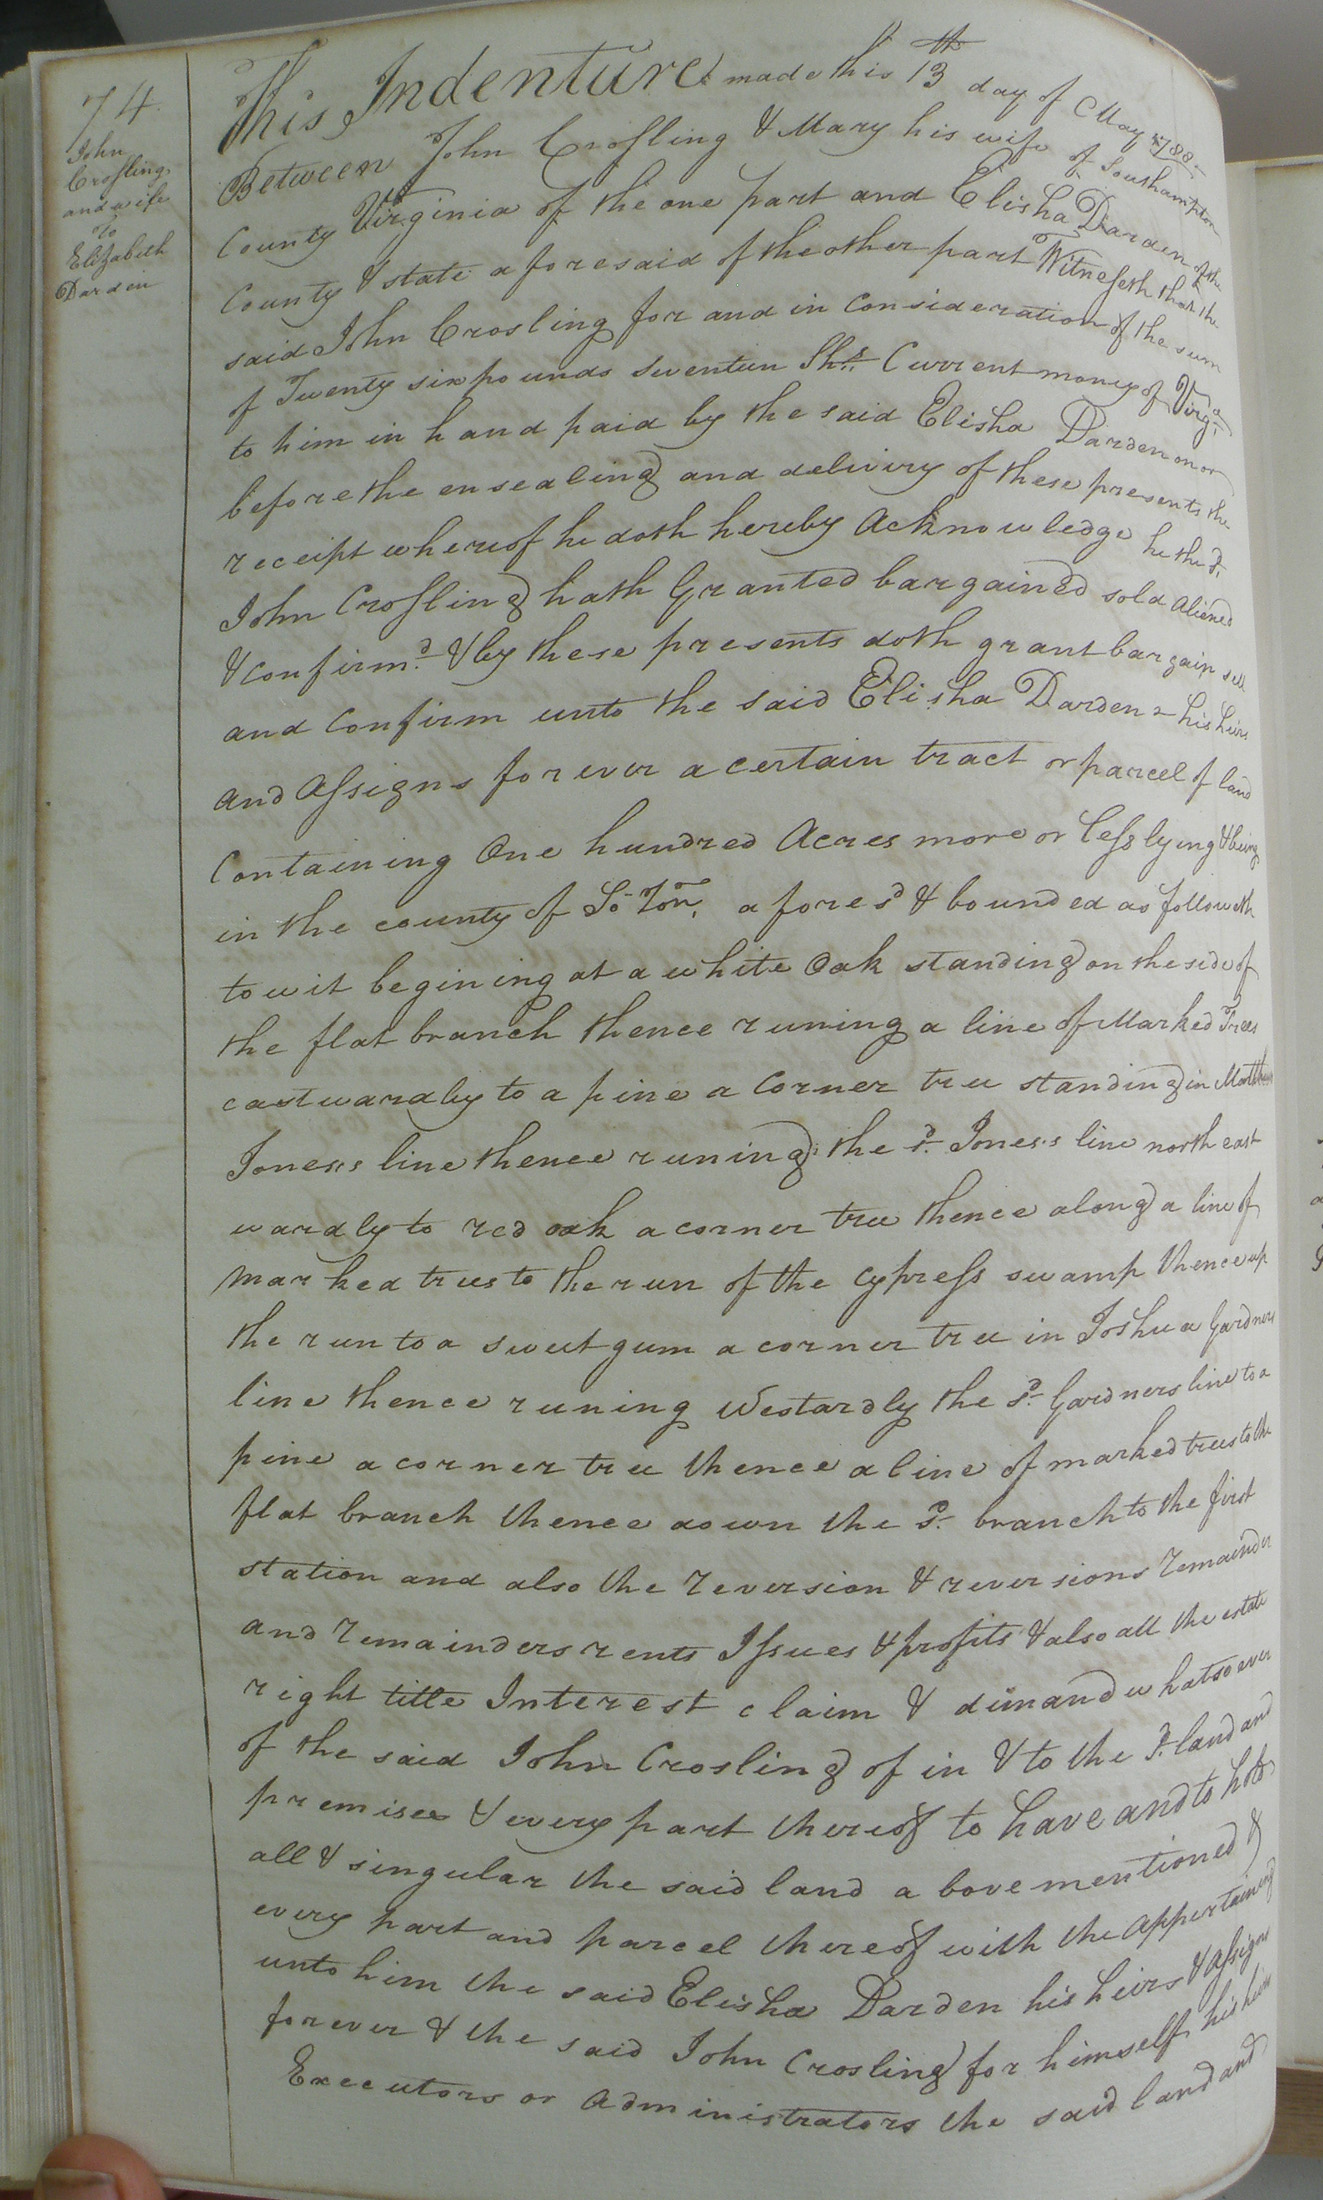 74.
John
Crosling
and wife
to
Elizabeth
Darden
This Indenture made this 13th day of May 1788
Between John Crosling & Mary his wife of Southampton
County Virginia of the one part and Elisha Darden of the
County & state aforesaid of the other part Witnesseth that the
said John Crosling for and in Consideration of the sum
of Twenty six pounds seventeen Shs. Current money of Virga.
to him in hand paid by the said Elisha Darden on or
before the ensealing and delivery of these presents the
receipt whereof he doth hereby Acknowledge he the sd.
John Crosling hath Granted bargained sold aliened
& confirmd. & by these presents doth grant bargain sell
and Confirm unto the said Elisha Darden his heirs
and Assigns forever a certain tract or parcel of land
Containing One hundred Acres more or less lying & being
in the county of So.Ton. afores'd & bounded as followeth
to wit begining at a white Oak standing on the side of
the flat branch thence runing a line of Marked Trees
eastwardly to a pine a Corner tree standing in
Jones's line thence runing the sd. Jones's line north east
wardly to red oak a corner tree thence along a line of
marked trees to the run of the cypress swamp thence up
the run to a sweet gum a corner tree in Joshua Gardners
line thence runing Westardly the sd. Gardners line to a
pine a corner tree thence a line of marked trees to the
flat branch thence down the sd. branch to the first
station and also the reversion & reversions remainder
and remainders rents Issues & profits & also all the estate
right title Interest claim & dimand whatsoever
of the said John Crosling of in & to the sd. land and
premises & every part thereof to have and to hold
all & singular the said land above mentioned &
every part and parcel thereof with the appertaining
unto him the said Elisha Darden his heirs & assigns
forever & the said John Crosling for himself his heirs
Executors or Administrators the said land and